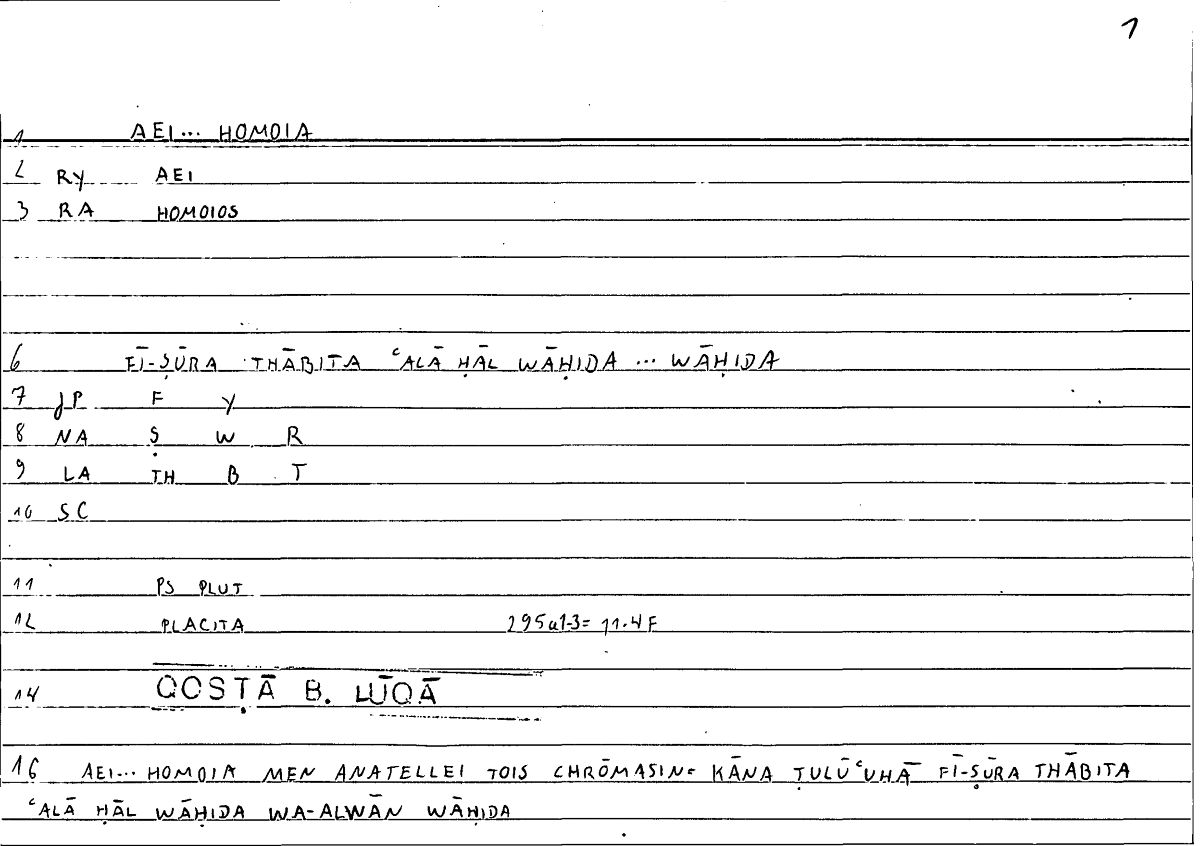 1
1 AEI... HOMOIA
2 RY AEI
3 RA HOMOIOS
6 FĪ-ṢŪRA THĀBITA ʿALĀ ḤĀL WĀḤIDA ... WĀḤIDA
7 JP F Y
8 NA Ṣ W R
9 LA TH B T
10 SC
11 PS PLUT
12 PLACITA 295a1-3= 11.4F
14 QOSṬĀ B. LŪQĀ
16 AEI... HOMOIA MEN ANATELLEI TOIS CHRŌMASIN= KĀNA ṬULŪʿUHĀ FĪ-ṢŪRA THĀBITA
ʿALĀ ḤĀL WĀḤIDA WA-ALWĀN WĀḤIDA